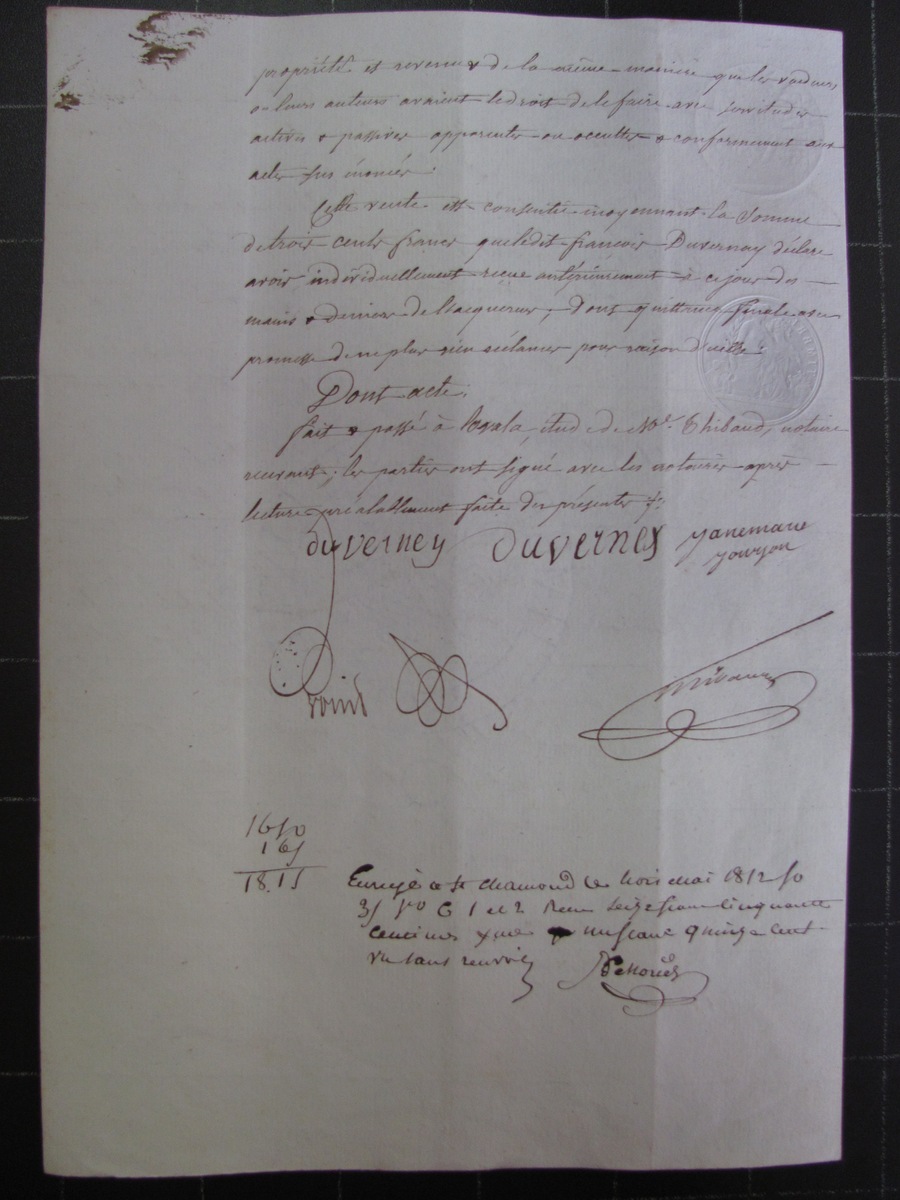 propriété et revenus de la même manière que les vendeurs
ou leurs auteurs avaient le droit de le faire avec servitudes
actives & passives apparentes ou occultes & conformément aux
actes sus énoncés.
Cette vente est consentie moyennant la somme
de trois cents francs que ledit françois Duvernay déclare
avoir individuellement reçue antérieurement à ce jour des
mains & deniers de l'acquereur, Dont quittance finale avec
promesse de ne plus rien en
pour raison d'icelle.
Dont acte.
fait & passé à étude de Me. Thibaud, notaire
recevant, les parties ont signé avec les notaires après
lecture préalablement faite des présentes
duverney duverney janemarie
jouyon
thibaud
1650
165
18.15
Enregé a St chamond le trois mai 1812 fo
35 vo C 1 et 2 Reçu seize francs cinquante
centimes un franc cent.
sans renvoi